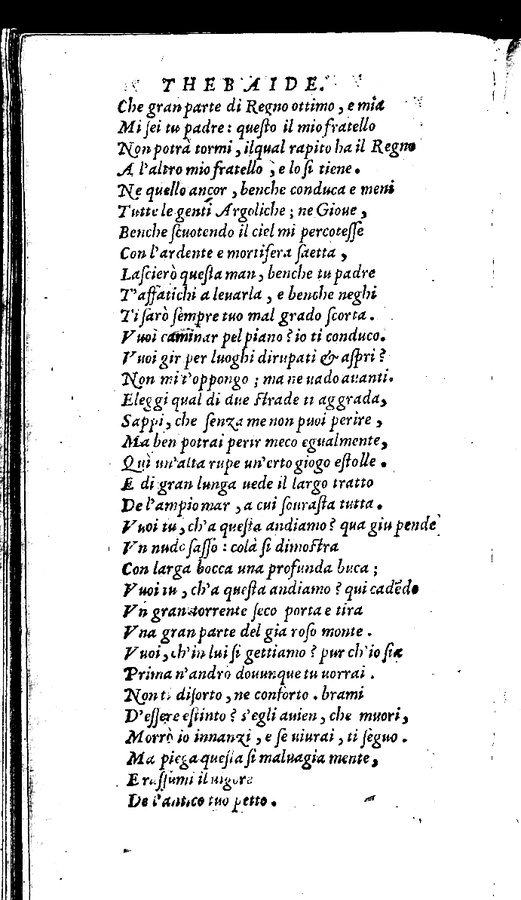 THEBAIDE.
Che gran parte di Regno ottimo, e mia
Mi ſei tu padre: queſto il mio fratello
Non potrà tormi, ilqual rapito ha il Regno
A l'altro mio fratello, e lo ſi tiene.
Ne quello ancor, benche conduca e meni
Tutte le genti Argoliche; ne Gioue,
Benche ſcuotendo il ciel mi percoteſſe
Con l'ardente e mortifera ſaetta,
Laſcierò queſta man, benche tu padre
T'affatichi a leuarla, e benche neghi
Ti ſarò ſempre tuo mal grado ſcorta.
Vuoi caminar pel piano? io ti conduco.
Vuoi gir per luoghi dirupati & aſpri?
Non mi t'oppongo; ma ne uado auanti.
Eleggi qual di due ſtrade ti aggrada,
Sappi, che ſenza me non puoi perire,
Ma ben potrai perir meco egualmente,
Quì un'alta rupe un'erto giogo eſtolle.
E di gran lunga uede il largo tratto
De l'ampio mar, a cui ſouraſta tutta.
Vuoi tu, ch'a queſta andiamo? qua giu pende
Vn nudo ſaſſo: colà ſi dimoſtra
Con larga bocca una profunda buca;
Vuoi tu, ch'a queſta andiamo? qui cadẽdo
Vn gran torrente ſeco porta e tira
Vna gran parte del gia roſo monte.
Vuoi, ch'in lui ſi gettiamo? pur ch'io ſia
Prima n'andrò douunque tu uorrai.
Non ti diſorto, ne conforto. brami
D'eſſere eſtinto? s'egli auien, che muori,
Morrò io innanzi, e ſe uiurai, ti ſeguo.
Ma piega queſta ſi maluagia mente,
E raſſumi il uigore
De l'antico tuo petto.